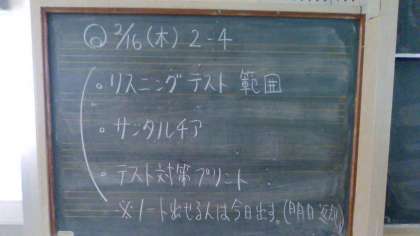 2/16(木) 2-4
。リスニングテスト 範囲
。サンタルチア
。テスト対策プリント
※ノート出せる人は今日出す。(明日返却)